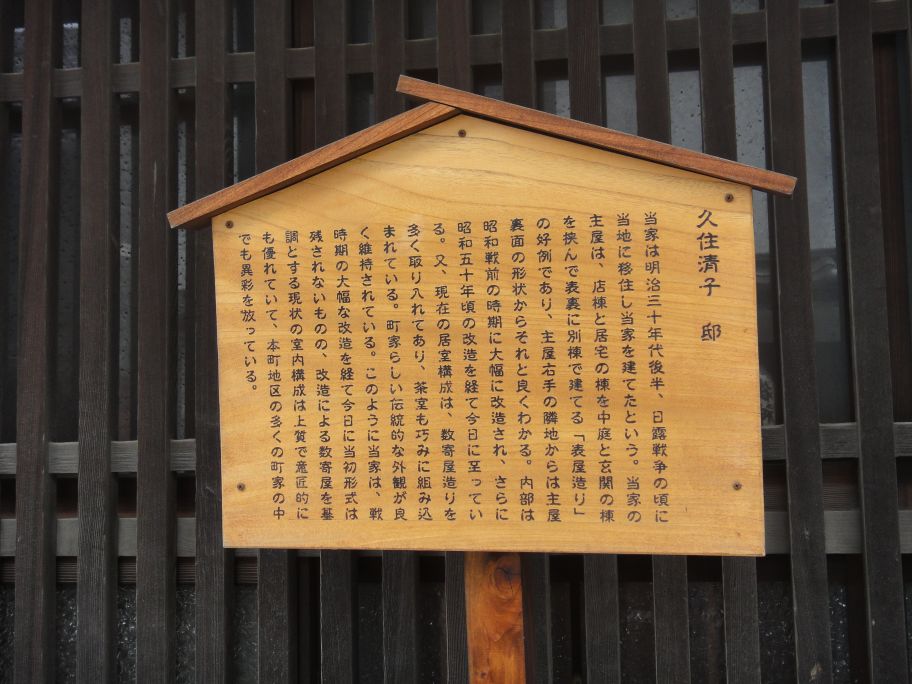 久住清子　邸
当家は明治三十年代後半、日露戦争の頃に
当地に移住し当家を建てたという。当家の
主屋は、店棟と居宅の棟を中庭と玄関の棟
を挟んで表裏に別棟で建てる「表屋造り」
の好例であり、主屋右手の隣地からは主屋
裏面の形状からそれと良くわかる。内部は
昭和戦前の時期に大幅に改造され、さらに
昭和五十年頃の改造を経て今日に至ってい
る。又、現在の居室構成は、数寄屋造りを
多く取り入れてあり、茶室も巧みに組み込
まれている。町家らしい伝統的な外観が良
く維持されている。このように当家は、戦
時期の大幅な改造を経て今日に当初形式は
残されないものの、改造による数寄屋を基
調とする現状の室内構成は上質で意匠的に
も優れていて、本町地区の多くの町家の中
でも異彩を放っている。